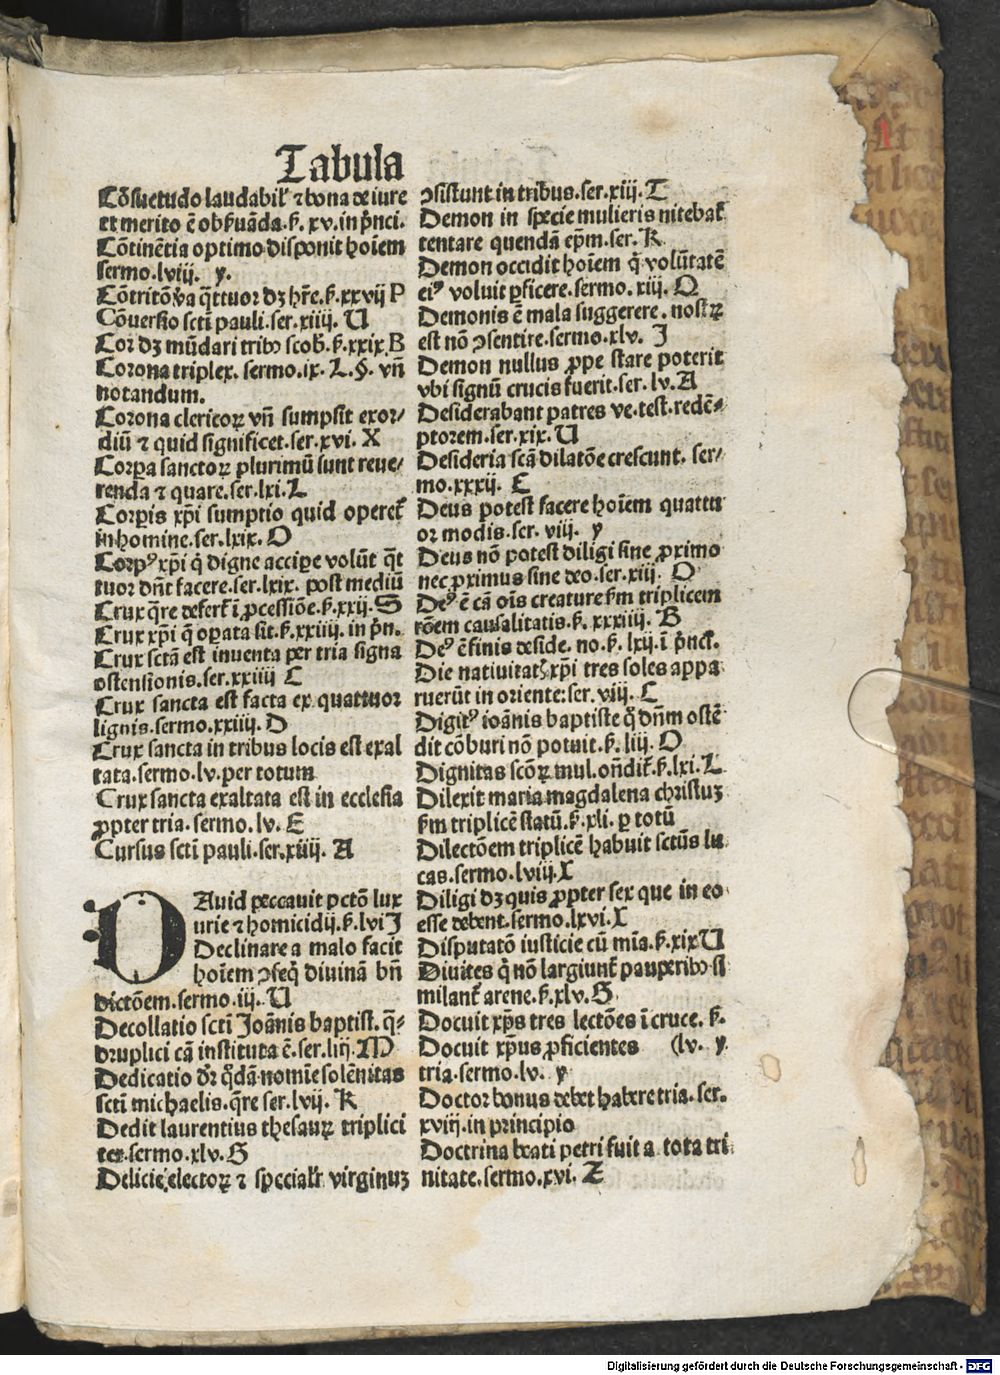 Tabula
Cōsuetudo laudabilꝭ ⁊ bona de iure
et merito ē obẜuāda.ẜ. xv.in pͥnci.
Cōtinētia optimo disponit hoīem
sermo.lviij. y.
Cōtritōꝭ ꝟa q̄ttuor dꝫ hr̄e.ẜ.xxvij P
Cōuersio scti pauli.ser.xiiij. U
Cor dꝫ mūdari tribꝰ scob̄.ẜ.xxix.B
Corona triplex. sermo.ix. L.§. vn̄
notandum.
Corona clericoꝝ vn̄ sumpsit exor/
diū ⁊ quid significet.ser.xvi. X
Corpa sanctoꝝ plurimū sunt reue/
renda ⁊ quare.ser.lxi.L
Corꝑis xp̄i sumptio quid operet᷑
in homine.ser.lxix. O
Corpꝰ xp̄i q̇ digne accipe volūt q̄t
tuor dn̄t facere.ser.lxix. post mediū
Crux q̄re defert᷑ ī ꝓcessiōe.ẜ.xxij.S
Crux xp̄i q̄ oꝑata sit.ẜ.xxiiij. in pͥn.
Crux sctā est inuenta per tria signa
ostensionis.ser.xxiiij C
Crux sancta est facta ex quattuor
lignis.sermo.xxiiij. D
Crux sancta in tribus locis est exal
tata.sermo.lv.per totum
Crux sancta exaltata est in ecclesia
ꝓpter tria. sermo.lv. E
Cursus scti pauli.ser.xiiij. A
DAuid peccauit pctō lux
urie ⁊ homicidij.ẜ.lvi J
Declinare a malo facit
hoīem ꝯseq̇ diuinā bn̄
dictōem.sermo.iij. U
Decollatio scti Joānis baptist. q̄⸗
druplici cā instituta ē.ser.liij. M
Dedicatio dr̄ q̇dā nomīe solēnitas
scti michaelis.q̄re ser.lvij. K
Dedit laurentius thesauꝝ triplici
ter.sermo.xlv.G
Delicie electoꝝ ⁊ specialꝭr virginuꝫ
ꝯsistunt in tribus.ser.xiij. T
Demon in specie mulieris nitebat᷑
tentare quendā ep̄m.ser. K
Demon occidit hoīem q̇ volūtatē
eiꝰ voluit ꝑficere.sermo. xiij. Q
Demonis ē mala suggerere. nostꝝ
est nō ꝯsentire.sermo.xlv. J
Demon nullus ꝓpe stare poterit
vbi signū crucis fuerit.ser. lv. A
Desiderabant patres ve.test.redē⸗
ptorem.ser.xix. U
Desideria scā dilatōe crescunt. ser/
mo.xxxij. C
Deus potest facere hoīem quattu
or modis.ser. viij. y
Deus nō potest diligi sine ꝓximo
nec proximus sine deo.ser.xiij. O
Deꝰ ē cā oīs creature ẜm triplicem
rōem causalitatis.ẜ. xxxiiij. B
Deꝰ ē finis deside. no.ẜ. lxij.ī pͥnc.
Die natiuitatꝭ xp̄i tres soles appa
ruerūt in oriente:ser. viij. C
Digitꝰ ioānis baptiste q̇ dn̄m ostē
dit cōburi nō potuit.ẜ. liij. O
Dignitas scōꝝ mul.on̄dit᷑.ẜ.lxi.L
Dilexit maria magdalena christuꝫ
ẜm triplicē statū.ẜ.xli. ꝑ totū
Dilectōem triplicē habuit sctūs lu
cas.sermo.lviij.X
Diligi dꝫ quis ꝓpter sex que in eo
esse debent.sermo.lxvi.X
Disputatō iusticie cū mīa.ẜ.xix U
Diuites q̇ nō largiunt᷑ pauperibꝰ si
milant᷑ arene.ẜ.xlv.G
Docuit xp̄s tres lectōes ī cruce. ẜ.
(lv. y
Docuit xp̄us ꝓficientes
tria.sermo.lv. y
Doctor bonus debet habere tria. ser.
xviij.in principio
Doctrina beati petri fuit a tota tri
nitate.sermo.xvi. Z
Digitalisierung gefördert durch die Deutsche Forschungsgemeinschaft - DFG